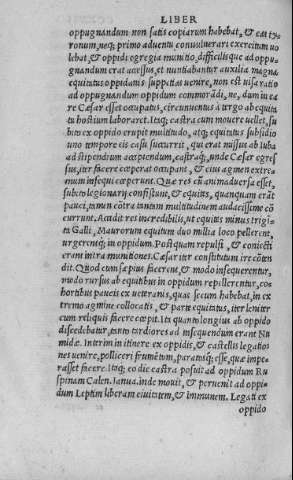 LIBER
oppugnandum non satis copiarum habebat, & eat ty-
ronum, neq; primo aduentu conuulnerari exercitum uo
lebat, & oppidi egregia munitio, difficilisque ad oppu-
gnandum erat acessus, et nuntiabantur auxilia magna
equitatus oppidanis suppetias uenire, non est uisa ratio
ad oppugnandum oppidum commorādi, ne, dum in ea
re Cæsar esset occupatus, circumuentus à tergo ab equita
tu hostium laboraret. Itaq; castra cum mouere uellet, su
bito ex oppido erupit multitudo, atq; equitatus subsidio
uno tempore eis casu succurrit, qui erat missus ab Iuba
ad stipendium accipiendum, castraq́;, unde Cæsar egres
sus, iter facere cœperat occupant, & eius agmen extre-
mum insequi cœperunt. Quæ res cū animaduersa esset,
subito legionarij consistunt, & equites, quanquam erāt
pauci, tamen cōtra tantam multitudinem audacissime cō
currunt. Accidit res incredibilis, ut equites minus trigin
ta Galli, Maurorum equitum duo millia loco pellerent,
urgerentq́; in oppidum. Postquam repulsi, & coniecti
erant intra munitiones. Cæsar iter constitutum ire cōten
dit. Quod cum sæpius facerent, & modo insequerentur,
modo rursus ab equitibus in oppidum repellerentur, co-
hortibus paucis ex ueteranis, quas secum habebat, in ex
tremo agmine collocatis, & parte equitatus, iter leniter
cum reliquis facere cœpit. Ita quanto longius ab oppido
discedebatur, tanto tardiores ad insequendum erant Nu
midæ. Interim in itinere ex oppidis, & castellis legatio
nes uenire, polliceri frumētum, paratosq́; esse, quæ impe-
rasset facere. Itaq; eo die castra posuit ad oppidum Ru
spinam Calen. Ianua. inde mouit, & peruenit ad oppi-
dum Leptim liberam ciuitatem, & immunem. Legati ex
oppido